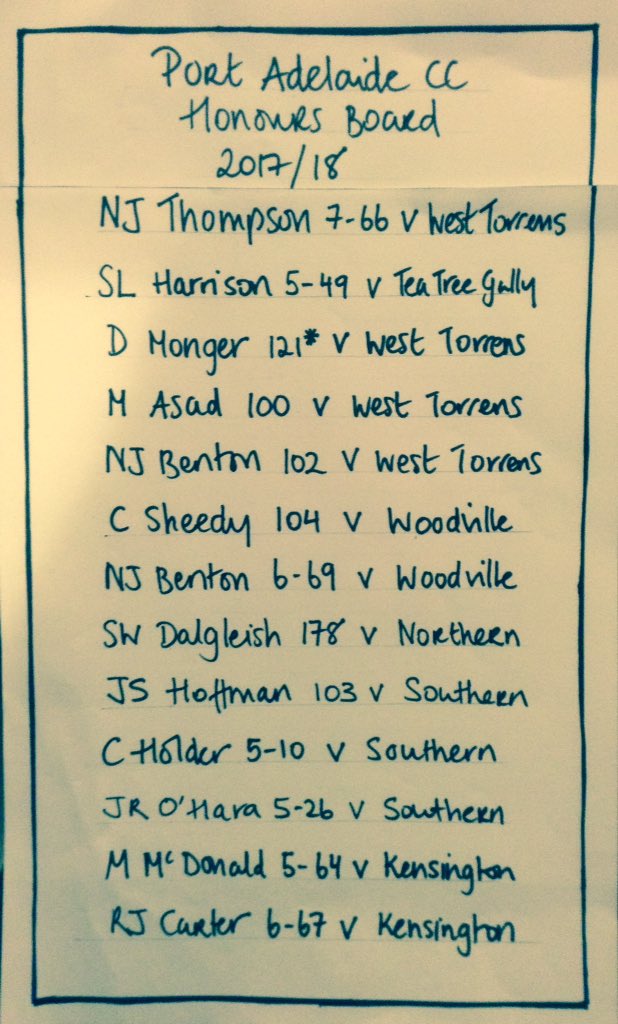 Port Adelaide CC
Honours Board
2017/18
NJ Thompson 7-66 v West Torrens
SL Harrison 5-49 v Tea Tree Gully
D Monger 121* v West Torrens
M Asad 100 v West Torrens
NJ Benton 102 v West Torrens
C Sheedy 104 v Woodville
NJ Benton 6-69 v Woodville
SW Dalgleish 178 v Northern
JS Hoffman 103 v Southern
C Holder 5-10 v Southern
JR O'Hara 5-26 v Southern
M McDonald 5-64 v Kensington
RJ Carter 6-67 v Kensington